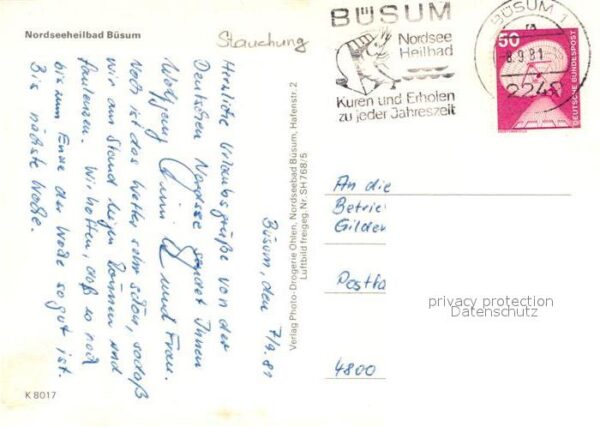 Nordseeheilbad Büsum
Stauchung
Büsum, den 7/9.81
Herzliche Urlaubsgrüße von der
Deutschen Nordsee sendet Ihnen
Wolfgang und Frau.
Noch ist das Wetter sehr schön, sodaß
wir am Strand liegen können und
faulenzen. Wir hoffen, daß es noch
bis zum Ende der Woche so gut ist.
Bis nächste Woche.
K 8017
Verlag Photo-Drogerie Ohlen, Nordseebad Büsum, Hafenstr. 2
Luftbild freigeg. Nr. SH 768/5
BÜSUM
Nordsee
Heilbad
Kuren und Erholen
zu jeder Jahreszeit
BÜSUM 1
8.9.81
2242
50
DEUTSCHE BUNDESPOST
An die
Betrie
Gilden
Postfa
4800
privacy protection
Datenschutz